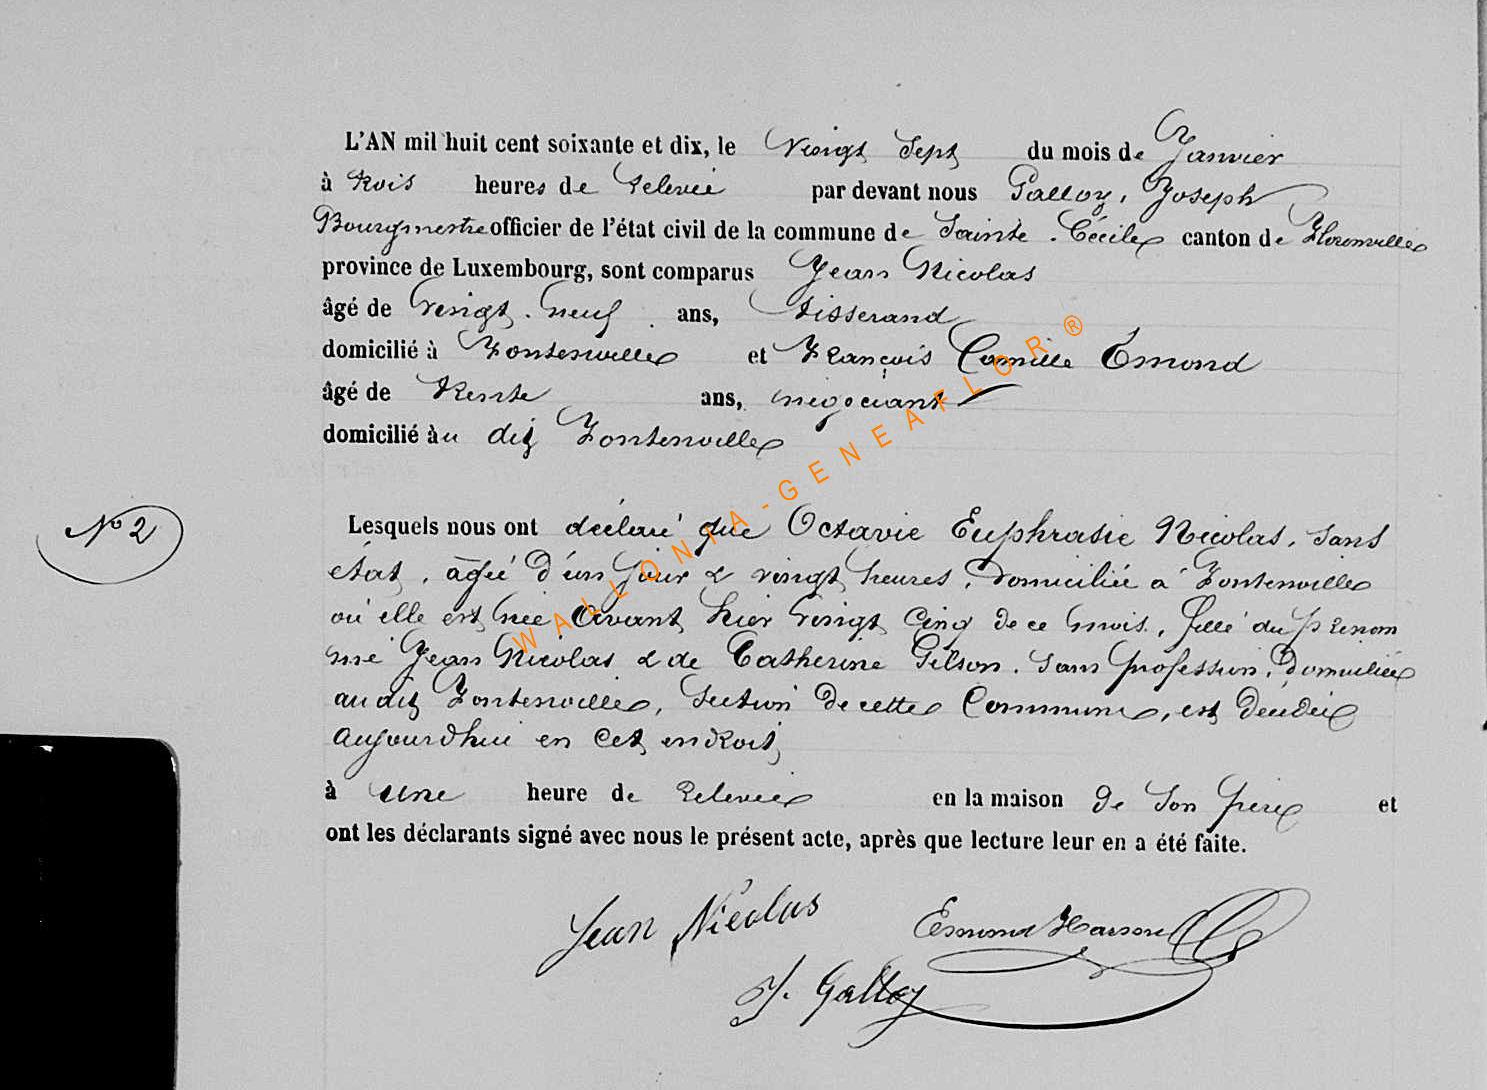 L'AN mil huit cent soixante et dix, le Vingt Sept du mois de Janvier
à trois heures de relevée par devant nous Galloy, Joseph
Bourgmestre officier de l'état civil de la commune de Sainte-Cécile canton de Florenville
province de Luxembourg, sont comparus Jean Nicolas
âgé de vingt-neuf ans, tisserand
domicilié à Fontenoille et François Camille Emond
âgé de trente ans, négociant
domicilié au dit Fontenoille
N° 2
Lesquels nous ont déclaré que Octavie Euphrasie Nicolas, sans
état, âgée d'un jour & vingt heures, domiciliée à Fontenoille
où elle est née avant hier vingt cinq de ce mois, fille du prénom
mé Jean Nicolas & de Catherine Gilson, sans profession, domiciliée
au dit Fontenoille, section de cette Commune, est décédée
aujourd'hui en cet endroit,
à une heure de relevée en la maison de son père et
ont les déclarants signé avec nous le présent acte, après que lecture leur en a été faite.
Jean Nicolas Emond
J. Galloy
WALLONIA-GENEAFLOR®